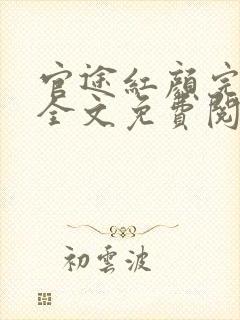 官途紅顏完
全文免費閱
初雲波